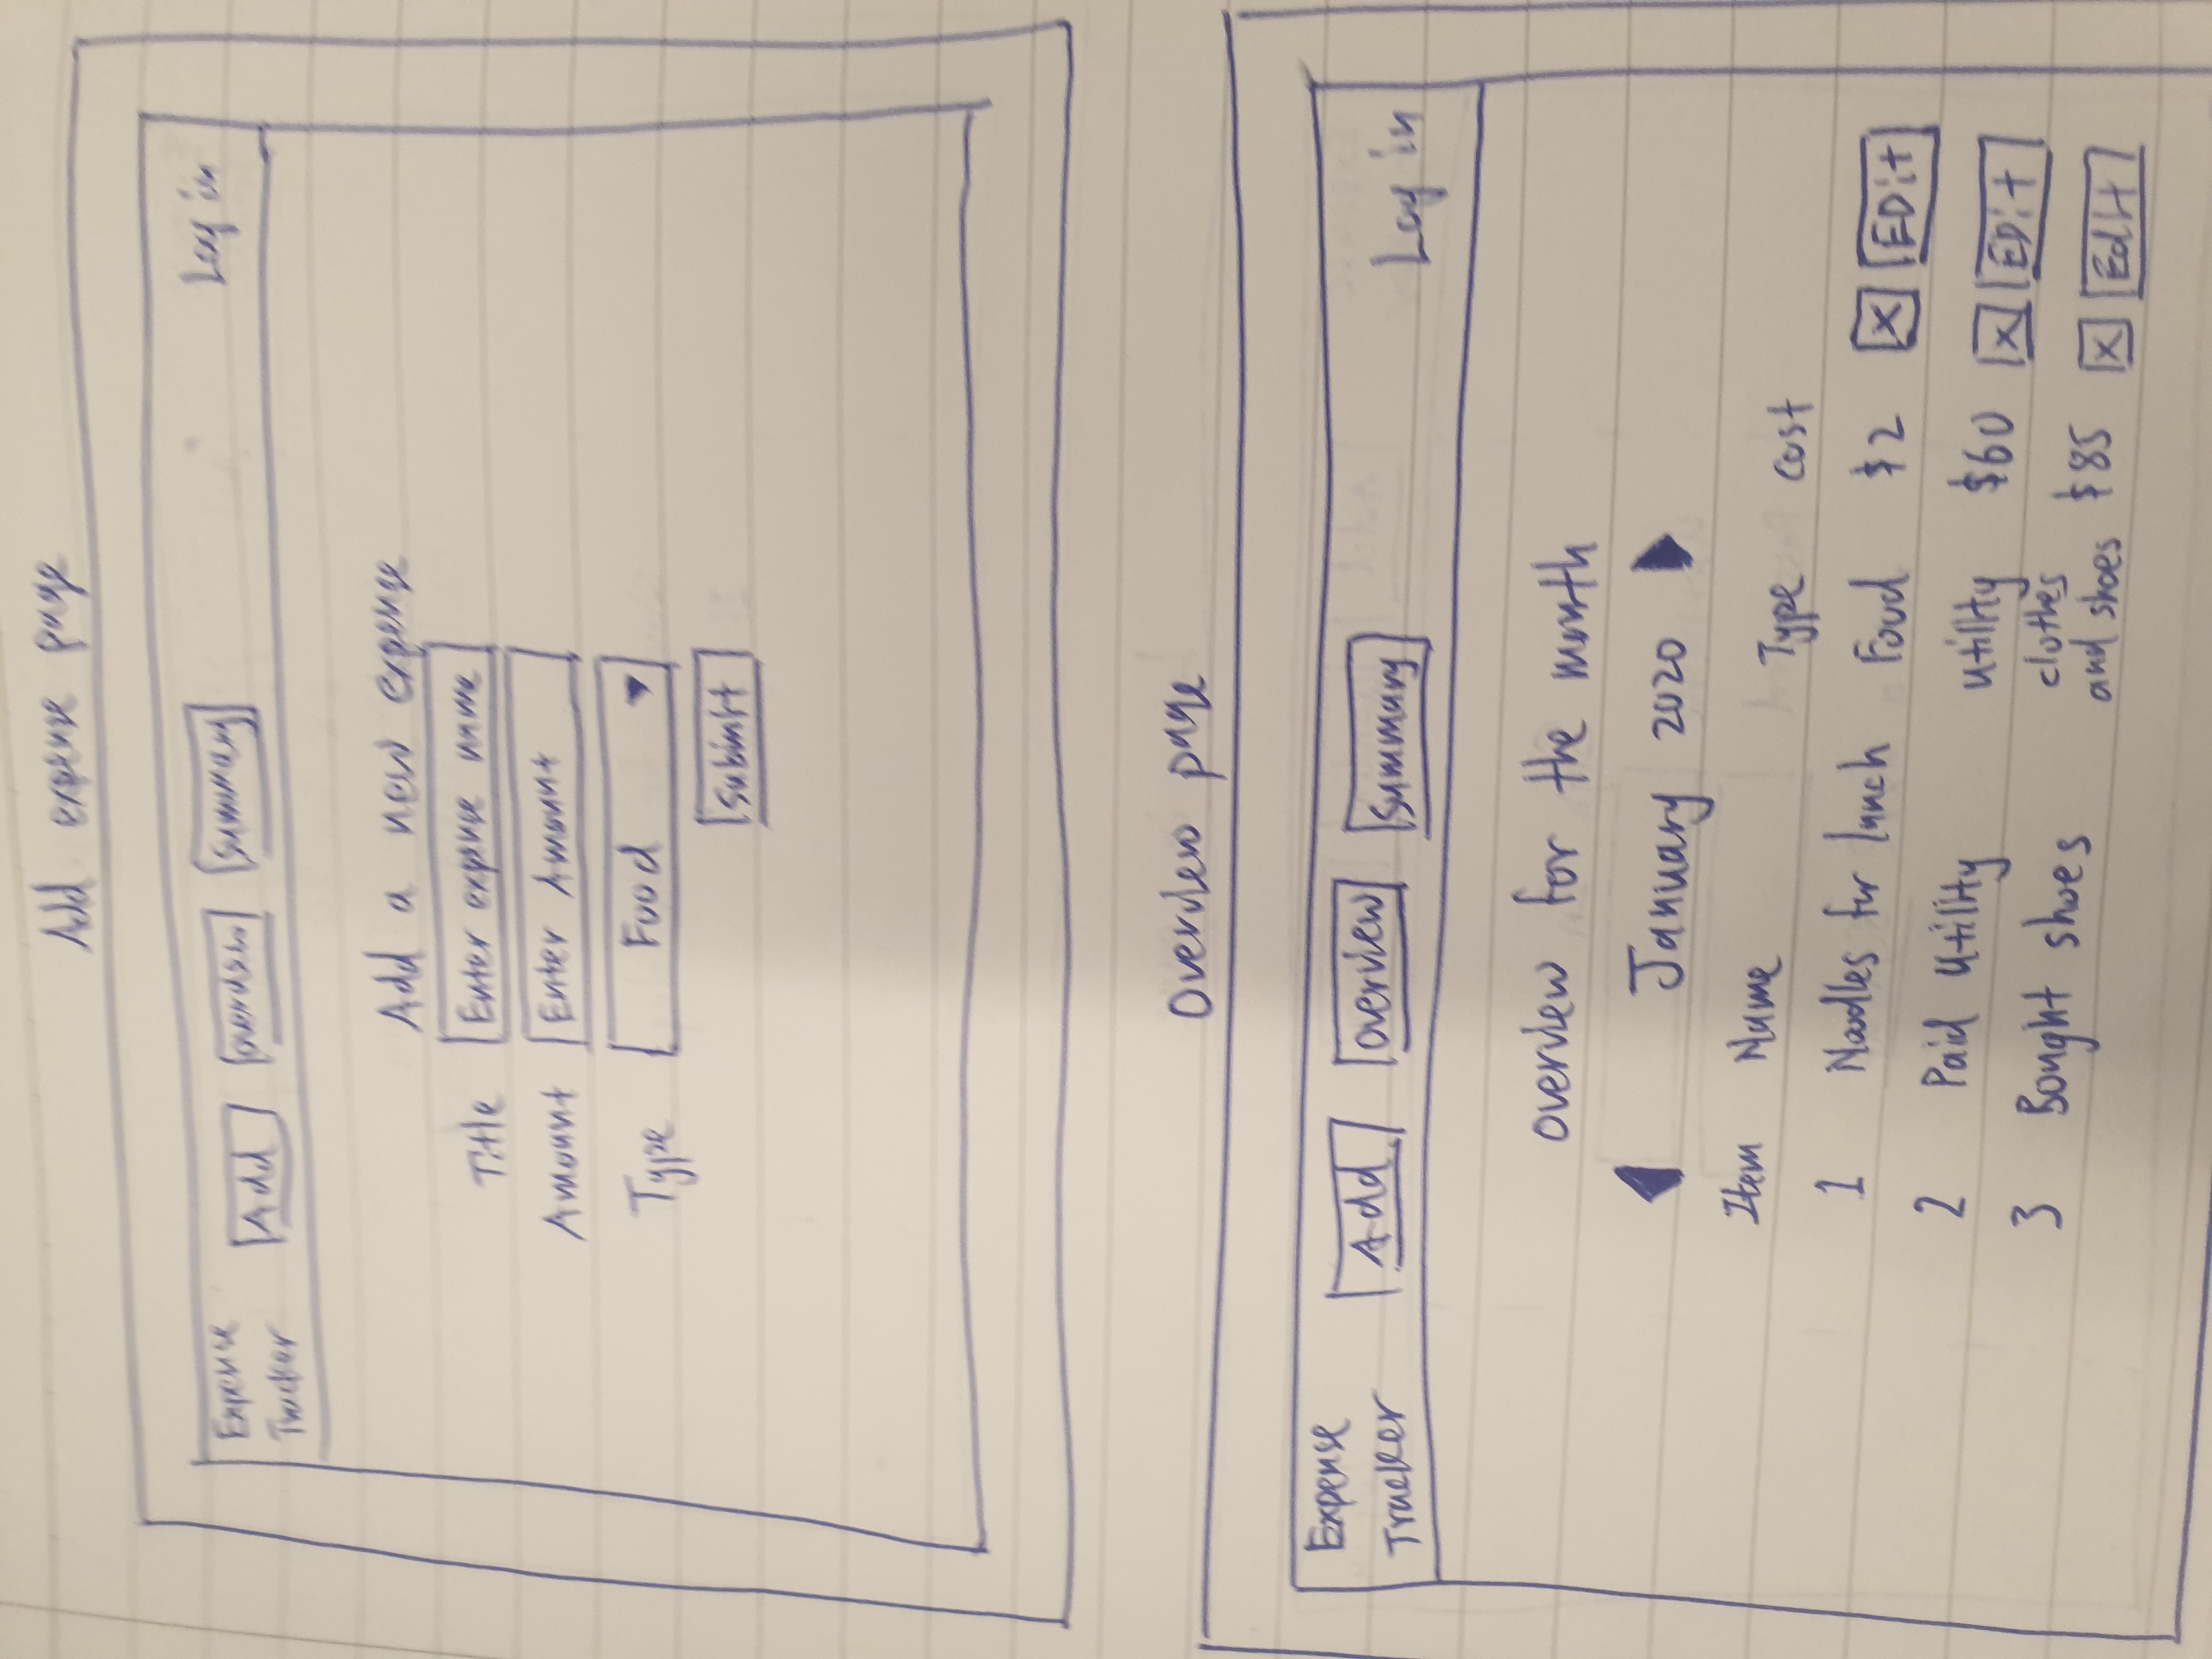 Add expense page
Expense
Tracker
Add
overview
Summary
Log in
Add a new expense
Title
Enter expense name
Amount
Enter Amount
Type
Food
Submit
Overview page
Expense
Tracker
Add
overview
Summary
Log in
overview for the month
January 2020
Item Name Type Cost
1 Noodles for lunch Food $2 X EDit
2 Paid utility utility $60 X EDit
3 Bought shoes clothes
and shoes $85 X Edit